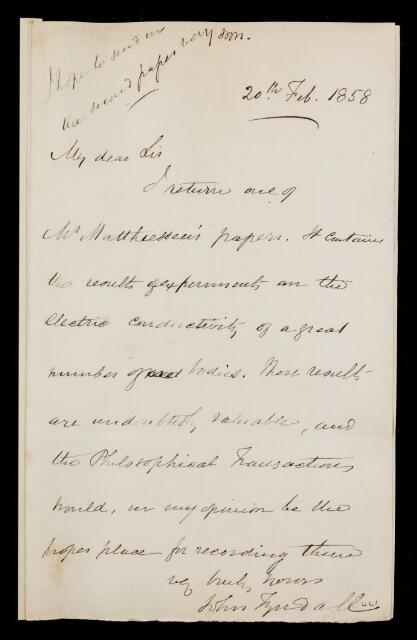 I hope to send in
the second paper very soon.
20th Feb. 1858
My dear Sir
I return one of
Mr Matthiessen's papers. It contains
the results of experiments on the
electric conductivity of a great
number of bodies. These results
are undoubtedly valuable, and
the Philosophical Transactions
would, in my opinion be the
proper place for recording them
very truly yours
John Tyndall